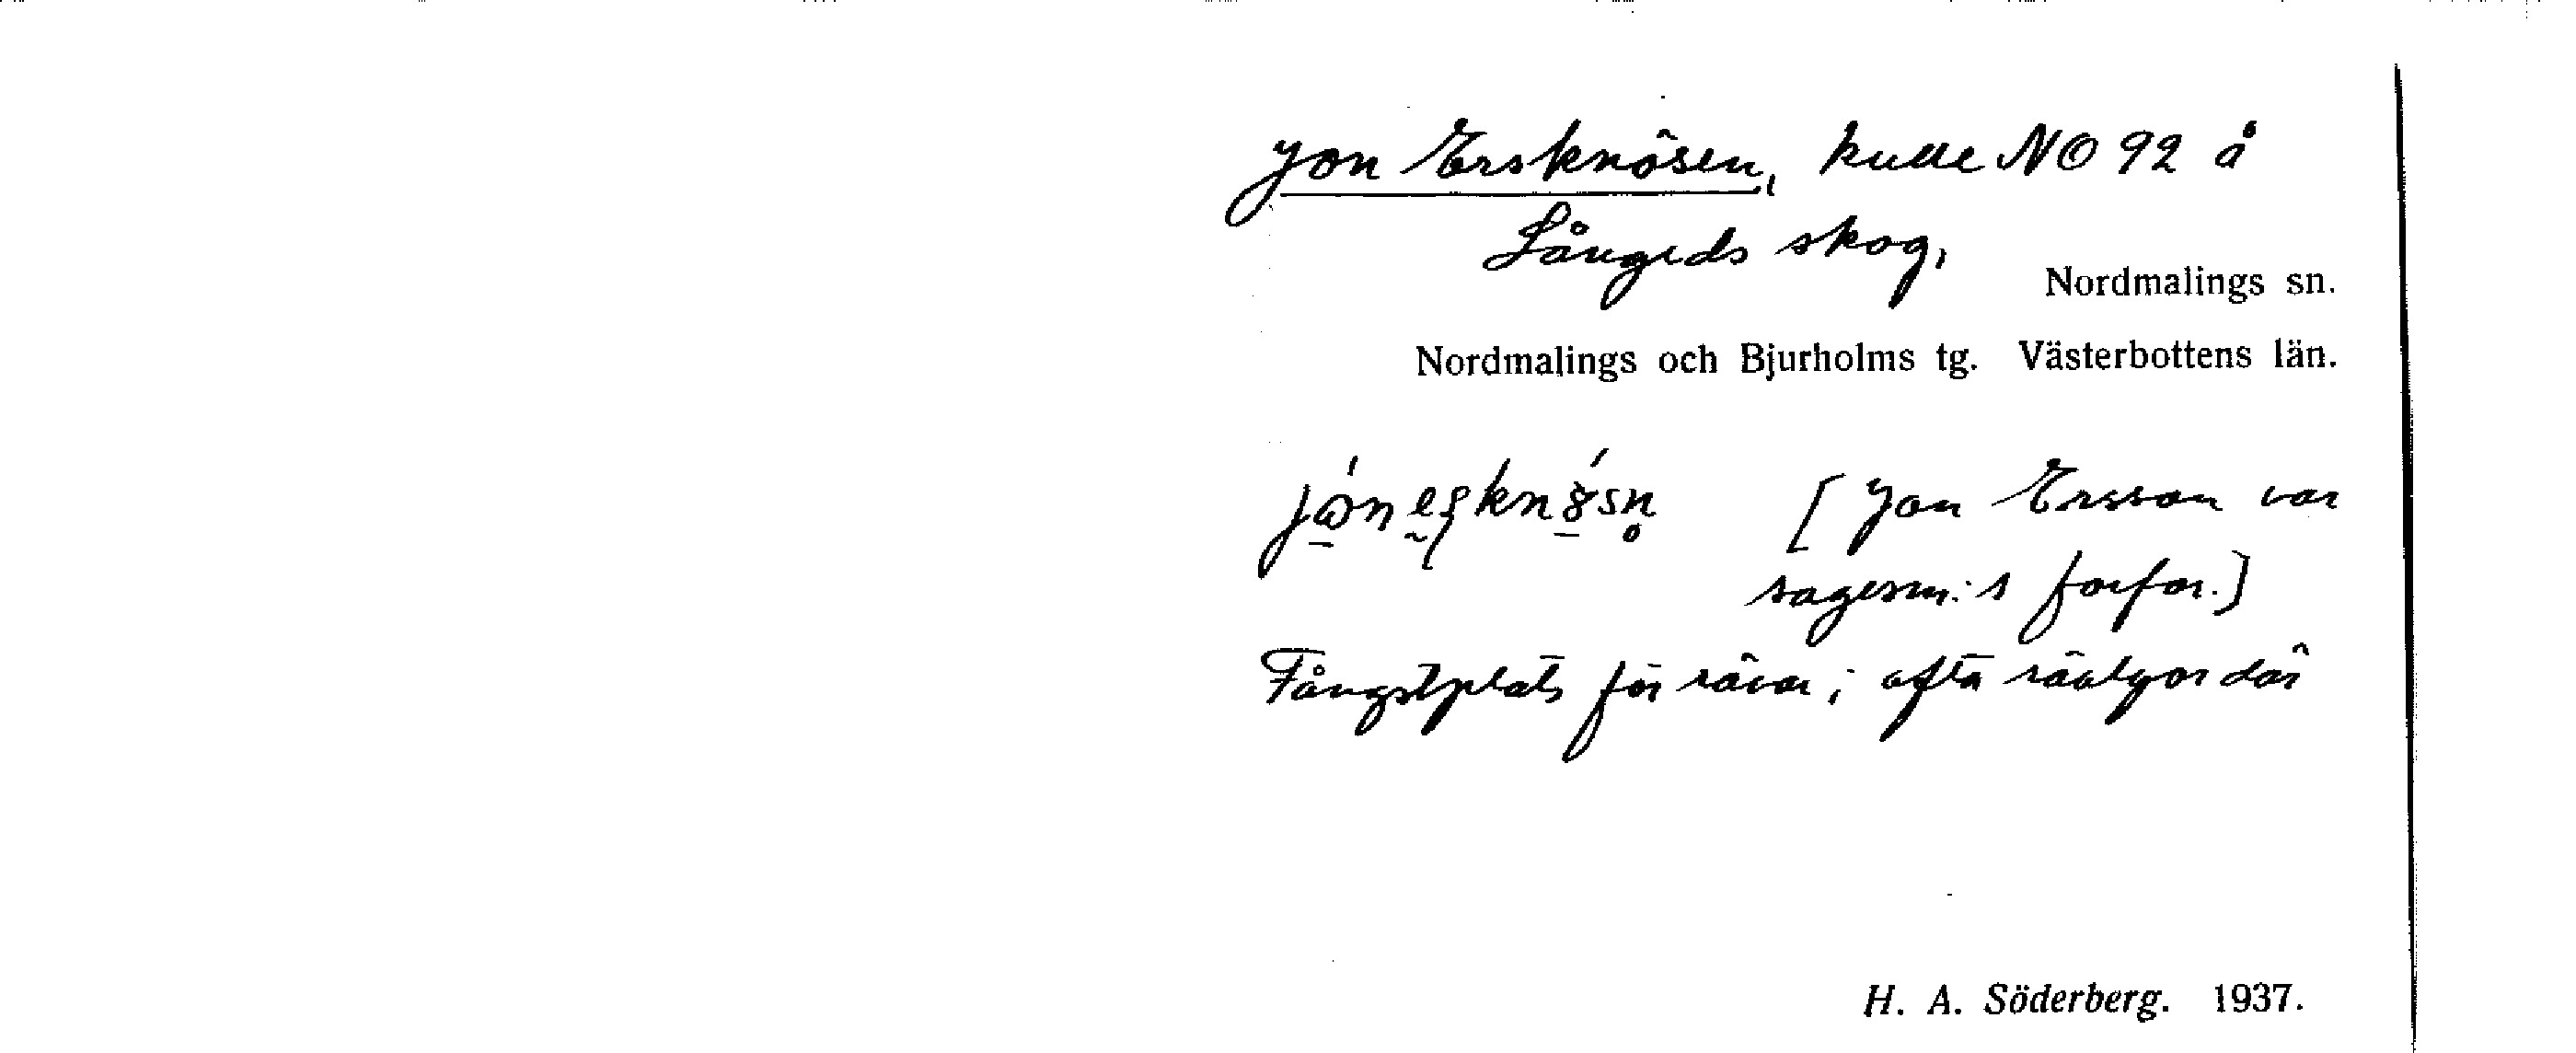 Jon Ersknösen, kulle NO 92 å
Långeds skog,
Nordmalings sn.
Nordmalings och Bjurholms tg. Västerbottens län.
[Jon Ersson var
sagesm:s farfar.]
Fångstplats för rävar; ofta rävlyor där
H. A. Söderberg. 1937.